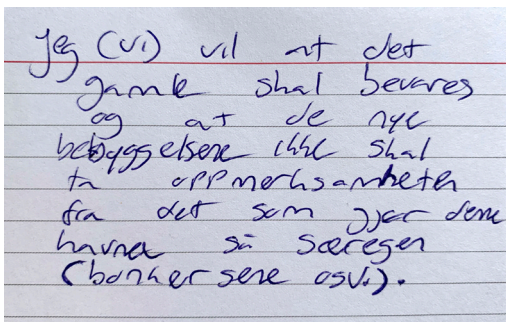 Jeg (vi) vil at det
gamle skal bevares
og at de nye
bebyggelsene ikke skal
ta oppmerksamheten
fra det som gjør denne
havnen så særegen
(bonkersene osv.).